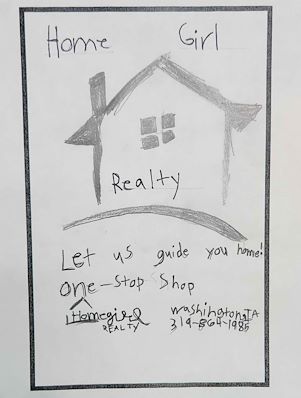 Home Girl
Realty
Let us guide you home!
One-Stop Shop
Homegirl
REALTY
Washington, IA
319-864-1985